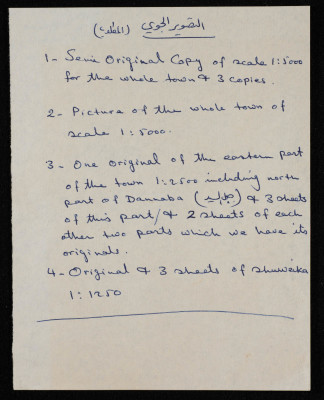 التصوير الجوي (المطلوب)
1 - Semi Original Copy of scale 1:5000
for the whole town & 3 copies.
2 - Picture of the whole town of
scale 1:5000.
3 - One Original of the eastern part
of the town 1:2500 including north
part of Dannaba & 3 sheets
of this part / & 2 sheets of each
other two parts which we have its
originals.
4 - Original & 3 sheets of Shuweika
1:1250